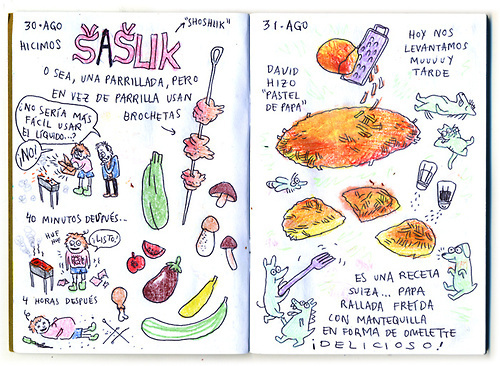 30·AGO
HICIMOS
ŠAŠLIK
"SHOSHLIK"
O SEA, UNA PARRILLADA, PERO
EN VEZ DE PARRILLA USAN
BROCHETAS
¿NO SERÍA MÁS
FÁCIL USAR
EL LÍQUIDO...?
¡NO!
40 MINUTOS DESPUÉS...
HUF
HUF
¡LISTO!
4 HORAS DESPUÉS
31·AGO
DAVID
HIZO
"PASTEL
DE PAPA"
HOY NOS
LEVANTAMOS
MUUUUY
TARDE
ES UNA RECETA
SUIZA... PAPA
RALLADA FREÍDA
CON MANTEQUILLA
EN FORMA DE OMELETTE
¡DELICIOSO!